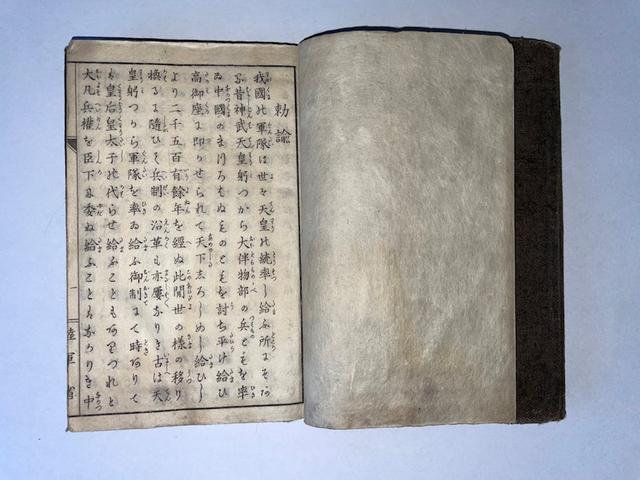 勅諭
我國の軍隊は世々天皇の統率し給ふ所にそあ
る昔神武天皇躬つから大伴物部の兵ともを率
ゐ中國のまつろはぬものともを討ち平け給ひ
高御座に即かせられて天下しろしめし給ひし
より二千五百有餘年を經ぬ此間世の樣の移り
換るに隨ひて兵制の沿革も亦屢なりき古は天
皇躬つから軍隊を率ゐ給ふ御制にて時ありて
は皇后皇太子の代らせ給ふこともありつれと
大凡兵權を臣下に委ね給ふことはなかりき中
一
陸軍省